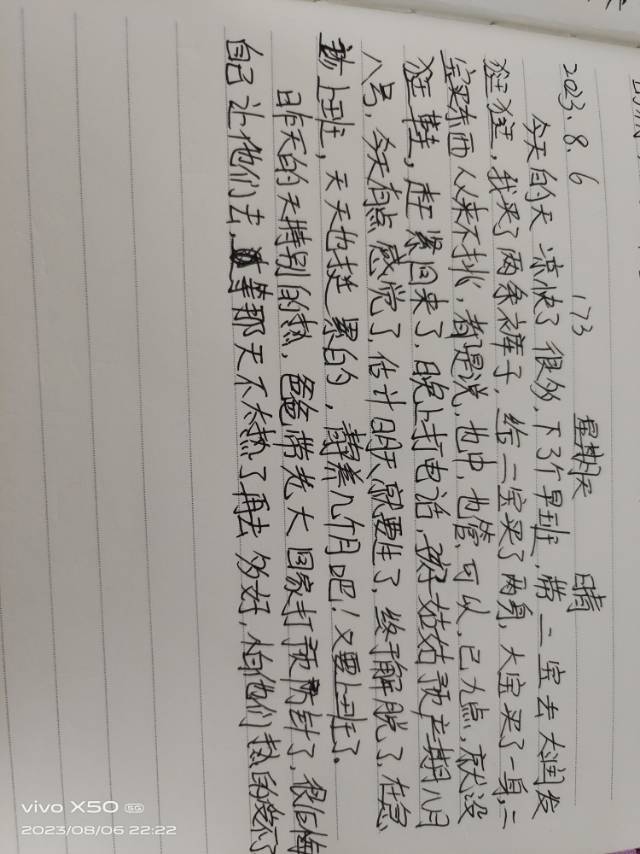 2023.8.6 173 星期天 晴
今天的天凉快了很多,下了个早班,带二宝去大润发
狂狂,我买了两条裤子,给二宝买了两身,大宝买了一身,二
宝买东西从来不挑,都是说,也中,也管,可以,已九点,就没
狂鞋,赶紧回来了,晚上打电话,好姑姑预产期八月
八号,今天有点感觉了,估计明天就要生了,终于解脱了,在急
上班,天天也挺累的,静养几个月吧!又要上班了。
昨天的天特别的热,爸爸带老大回家打预防针了,很后悔
自己让他们去,等那天不太热了再去多好,怕他们热的受不了
vivo X50 5G
2023/08/06 22:22